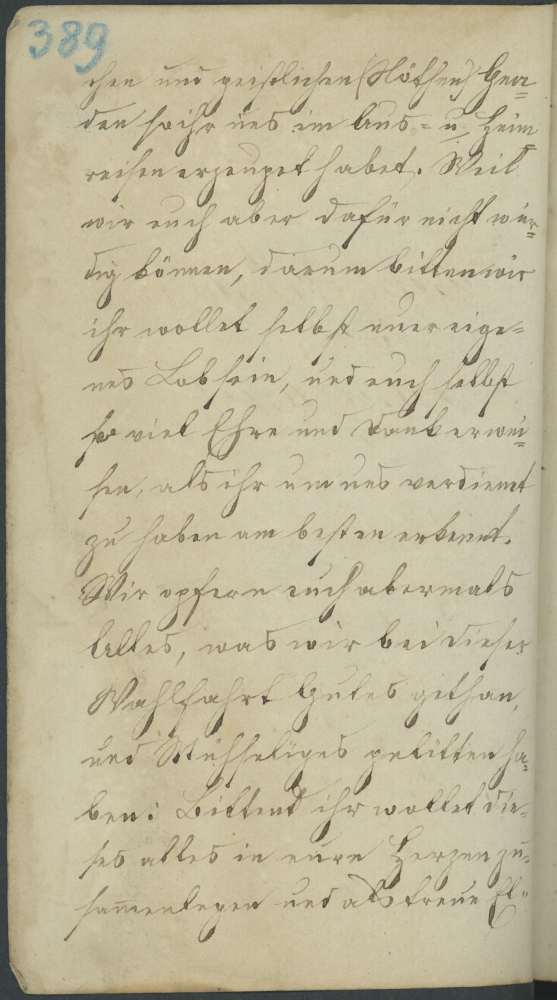 389
chen und geistlichen (Nöthen) Gna=
den so ihr uns im Aus= u. Heim
reisen erzeuget habet. Weil
wir euch aber dafür nicht wür=
dig können, darum bitten wir
ihr wollet selbst euer eige=
nes Lob sein, und euch selbst
so viel Ehre und Dank erwei=
sen, als ihr um uns verdient
zu haben am besten erkennt.
Wir opfern euch abermals
Alles, was wir bei dieser
Wahlfahrt Gutes gethan,
und Mühseliges gelitten ha=
ben: Bittend ihr wollet die=
ses alles in eure Herzen zu=
sam̅enlegen und als treue El=